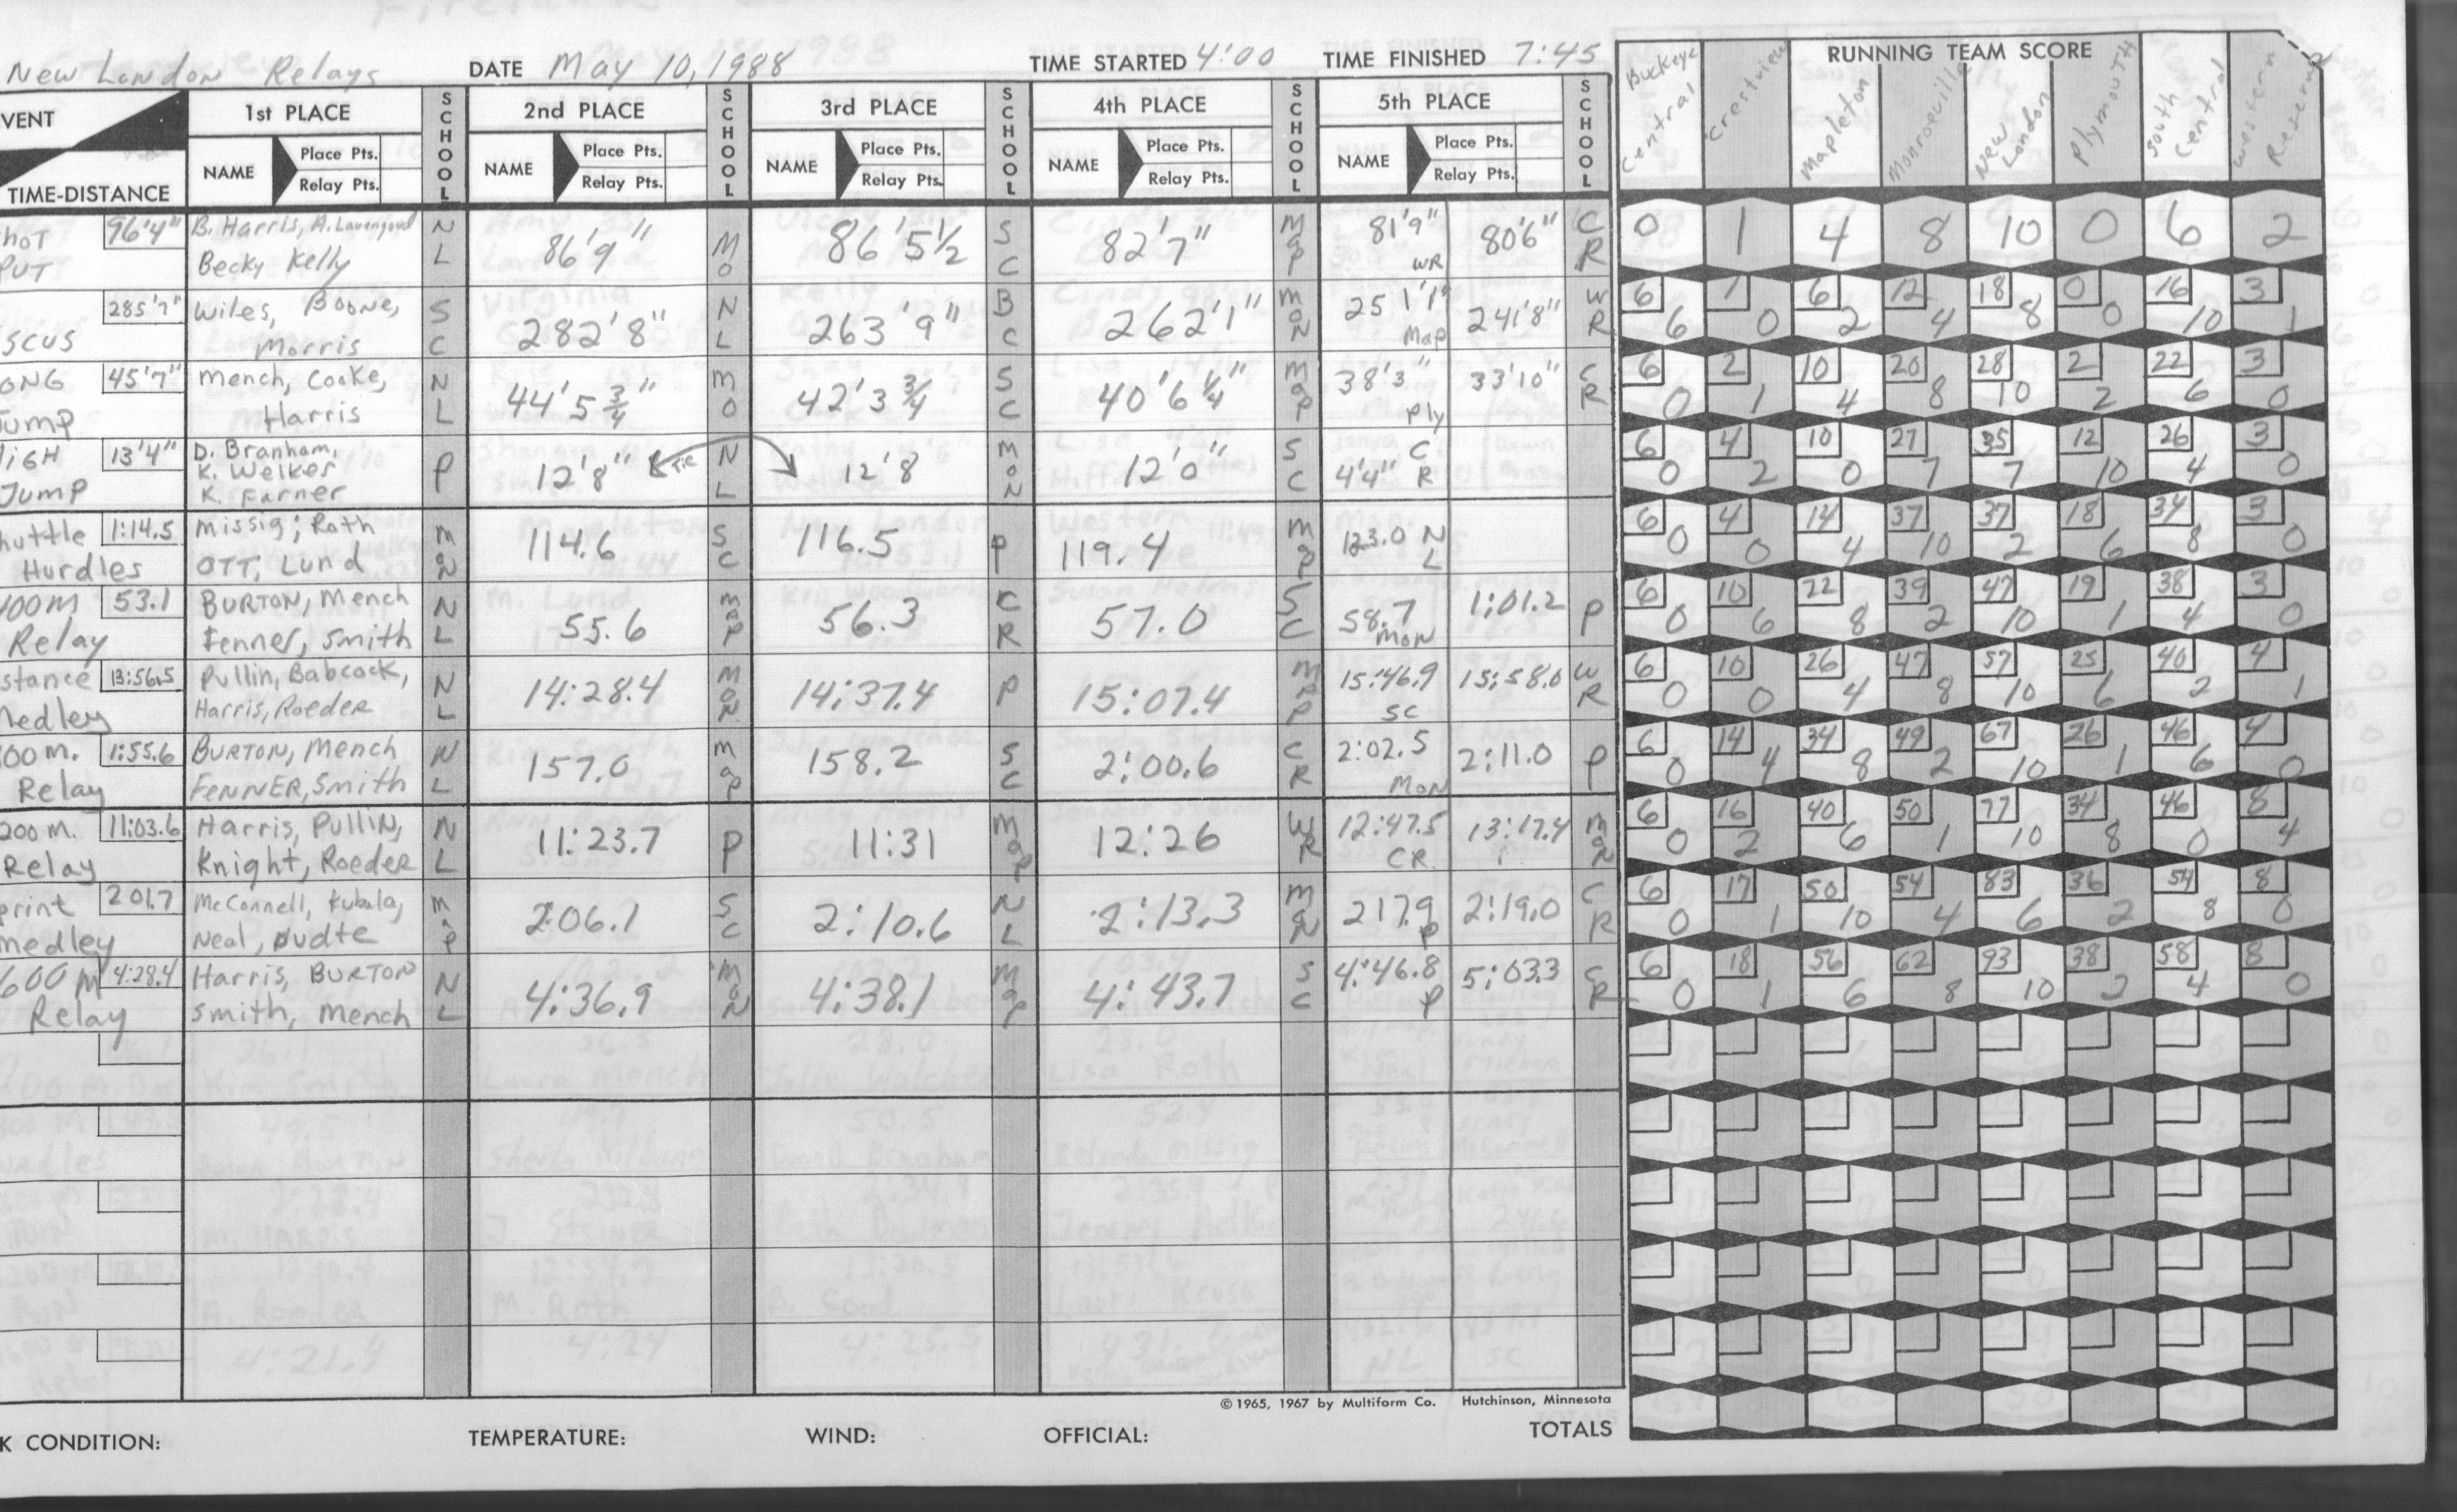 New London Relays DATE May 10, 1988 TIME STARTED 4:00 TIME FINISHED 7:45
RUNNING TEAM SCORE
Buckeye Central Crestview Mapleton Monroeville New London Plymouth South Central Western Reserve
VENT 1st PLACE SCHOOL 2nd PLACE SCHOOL 3rd PLACE SCHOOL 4th PLACE SCHOOL 5th PLACE SCHOOL
TIME-DISTANCE NAME Place Pts. Relay Pts. NAME Place Pts. Relay Pts. NAME Place Pts. Relay Pts. NAME Place Pts. Relay Pts. NAME Place Pts. Relay Pts.
hot 96'4" B. Harris, A. Lavengood NL 86'9" Mo 86'5½ SC 82'7" Map 81'9" 80'6" CR 0 1 4 8 10 0 6 2
PUT Becky Kelly WR
285'7" Wiles, Boone, SC 282'8" NL 263'9" BC 262'1" Mon 251'1" 241'8" WR 6 1 6 12 18 0 16 3
SCUS Morris Map 6 0 2 4 8 0 10 1
ONG 45'7" Mench, Cooke, NL 44'5¾" Mo 42'3¾ SC 40'6¼" Map 38'3" 33'10" CR 6 2 10 20 28 2 22 3
Jump Harris Ply 0 1 4 8 10 2 6 0
HIGH 13'4" D. Branham, P 12'8" Tie NL 12'8 Mon 12'0" SC 4'4" CR 6 4 10 27 35 12 26 3
Jump K. Welker 0 2 0 7 7 10 4 0
K. Farner
huttle 1:14.5 Missig; Roth Mon 114.6 SC 116.5 P 119.4 Map 123.0 NL 6 4 14 37 37 18 34 3
Hurdles OTT, Lund 0 0 4 10 2 6 8 0
400m 53.1 BURTON, Mench NL 55.6 Map 56.3 CR 57.0 SC 58.7 1:01.2 P 6 10 22 39 47 19 38 3
Relay Fenner, Smith Mon 0 6 8 2 10 1 4 0
stance 13:56.5 Pullin, Babcock, NL 14:28.4 Mon 14:37.4 P 15:07.4 Map 15:46.9 15:58.0 WR 6 10 26 47 57 25 40 4
Medley Harris, Roeder SC 0 0 4 8 10 6 2 1
00 m. 1:55.6 BURTON, Mench NL 157.0 Map 158.2 SC 2:00.6 CR 2:02.5 2:11.0 P 6 14 34 49 67 26 46 4
Relay FENNER, Smith Mon 0 4 8 2 10 1 6 0
200 M. 11:03.6 Harris, PULLIN, NL 11:23.7 P 11:31 Map 12:26 WR 12:47.5 13:17.4 Mon 6 16 40 50 77 34 46 8
Relay Knight, Roeder CR 0 2 6 1 10 8 0 4
print 201.7 McConnell, Kubala, Map 206.1 SC 2:10.6 NL 2:13.3 Mon 217.9 2:19.0 CR 6 17 50 54 83 36 54 8
medley Neal, Dudte P 0 1 10 4 6 2 8 0
600 M 4:28.4 Harris, BURTON NL 4:36.9 Mon 4:38.1 Map 4:43.7 SC 4:46.8 5:03.3 CR 6 18 56 62 93 38 58 8
Relay Smith, Mench P 0 1 6 8 10 2 4 0
© 1965, 1967 by Multiform Co. Hutchinson, Minnesota
K CONDITION: TEMPERATURE: WIND: OFFICIAL: TOTALS